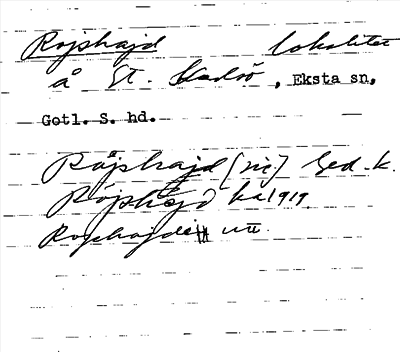 Rojshajd lokalitet
å St. Karlsö, Eksta sn,
Gotl. S. hd.
Råjshajd (sic.) Ged. k.
Röjshajd ka 1919
Rojshajde uu.